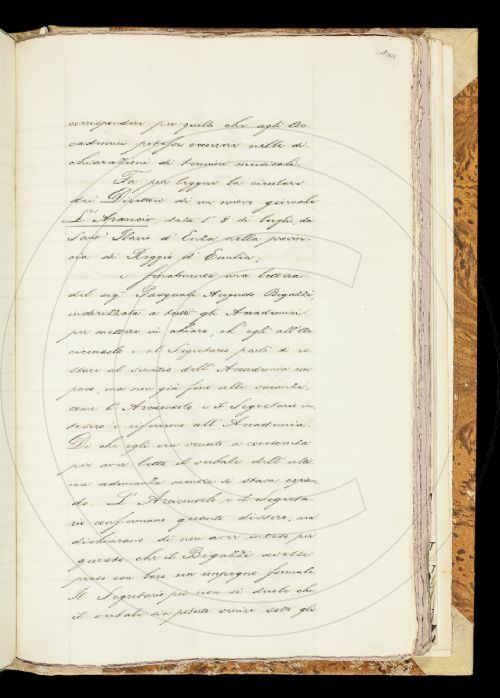 corrispondere per quello che agli Ac-
cademici potesse occorrere nelle di-
chiarazioni di termini musicali.
Fa poi leggere la circolare
del Direttore di un nuovo giornale
L'Arancio, data l' 8 di luglio da
Sant' Ilario d' Enza nella provin-
cia di Reggio d' Emilia;
e finalmente una lettera
del sig. Pasquale Augusto Bigazzi,
indirizzata a tutti gli Accademici
per mettere in chiaro, ch' egli all' Ar-
ciconsolo e al Segretario parlò di re-
stare al servizio dell' Accademia un
poco, ma non già fino alle vacanze,
come l' Arciconsolo e il Segretario in-
tesero e riferirono all' Accademia.
Di che egli era venuto a conoscenza
per aver letto il verbale dell' ulti-
ma adunanza mentre si stava copian-
do. L' Arciconsolo e il Segreta-
rio confermano quanto dissero, ma
dichiarano di non aver inteso per
questo che il Bigazzi avesse
preso con loro un impegno formale.
Il Segretario poi non si duole che
il verbale sia potuto venire sotto gli